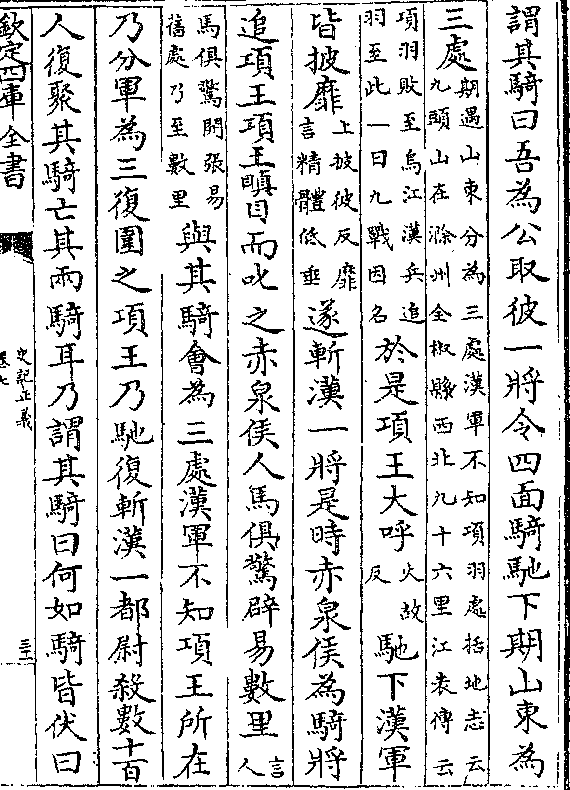 謂其騎曰吾為公取彼一將令四面騎馳下期山東為
三處期遇山東分為三處漢軍不知項羽處括地志云
九頭山在滁州全椒縣西北九十六里江表傳云
項羽敗至烏江漢兵追
羽至此一日九戰因名於是項王大呼火故
反馳下漢軍
皆披靡上披彼反靡
言精體低垂遂斬漢一將是時赤泉侯為騎將
追項王項王瞋目而叱之赤泉侯人馬俱驚辟易數里言人
馬俱驚開張易
舊處乃至數里與其騎會為三處漢軍不知項王所在
乃分軍為三復圍之項王乃馳復斬漢一都尉殺數十百
人復聚其騎亡其兩騎耳乃謂其騎曰何如騎皆伏曰
欽定四庫全書
史記正義
卷七
三十一